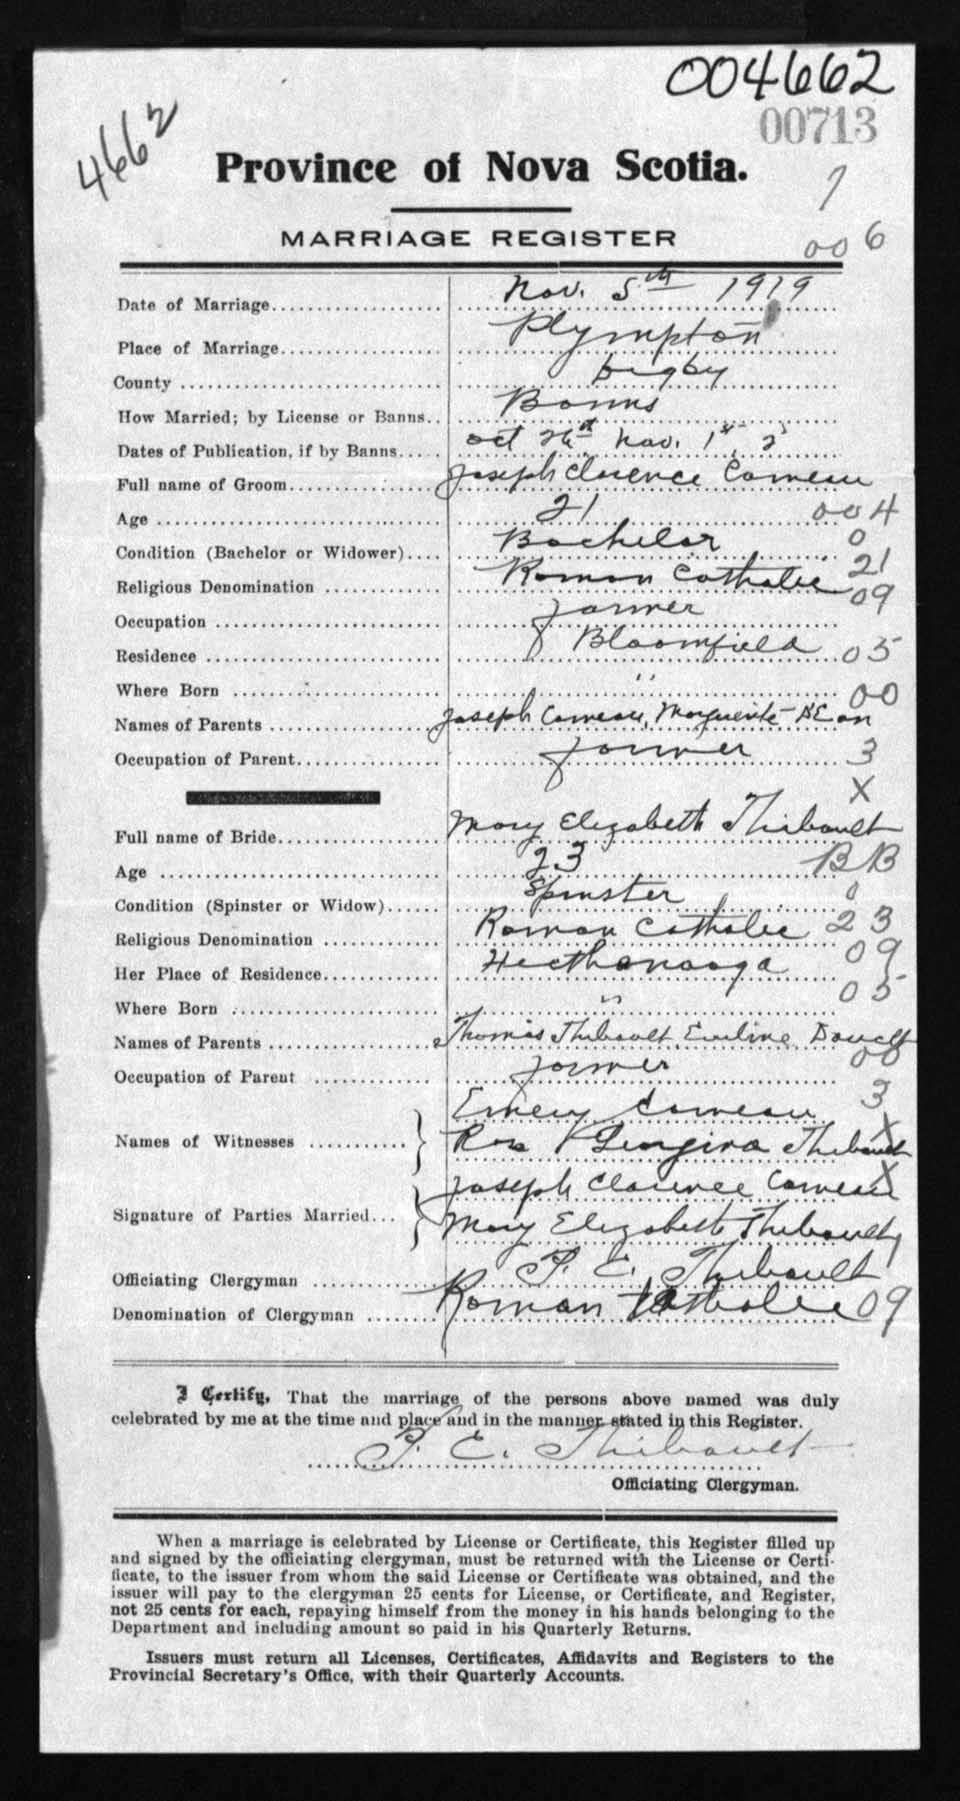 004662
00713
4662
Province of Nova Scotia.
1
MARRIAGE REGISTER
006
Date of Marriage Nov. 5th 1919
Place of Marriage Plympton
County Digby
How Married; by License or Banns Banns
Dates of Publication, if by Banns Oct 26th Nov. 1st, 2
Full name of Groom Joseph Clarence Comeau
Age 21 004
Condition (Bachelor or Widower) Bachelor 0
Religious Denomination Roman Catholic 21
09
Occupation Farmer
Residence Bloomfield 05
Where Born " 00
Names of Parents Joseph Comeau, Marguerite
Occupation of Parent Farmer 3
X
Full name of Bride Mary Elizabeth Thibault
Age 23 BB
Condition (Spinster or Widow) Spinster 0
Religious Denomination Roman Catholic 23
09
Her Place of Residence Hecthanooga
05
Where Born "
Names of Parents Thomas Thibault, Eveline Doucett
00
Occupation of Parent Farmer
3
Names of Witnesses } Emery Comeau
X
Georgina Thibault
X
Signature of Parties Married... } Joseph Clarence Comeau
Mary Elizabeth Thibault
Officiating Clergyman P. E. Thibault
Denomination of Clergyman Roman Catholic 09
I Certify, That the marriage of the persons above named was duly
celebrated by me at the time and place and in the manner stated in this Register.
P. E. Thibault
Officiating Clergyman.
When a marriage is celebrated by License or Certificate, this Register filled up
and signed by the officiating clergyman, must be returned with the License or Certi-
ficate, to the issuer from whom the said License or Certificate was obtained, and the
issuer will pay to the clergyman 25 cents for License, or Certificate, and Register,
not 25 cents for each, repaying himself from the money in his hands belonging to the
Department and including amount so paid in his Quarterly Returns.
Issuers must return all Licenses, Certificates, Affidavits and Registers to the
Provincial Secretary's Office, with their Quarterly Accounts.